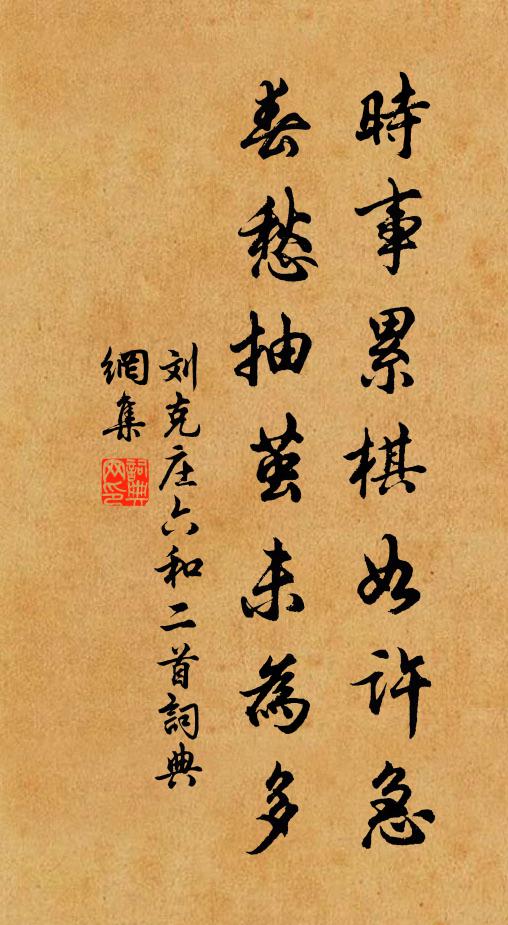 時事累棋如許急
春愁抽茧未為多
刘克庄六和二首詞典
網集
詞典
网印